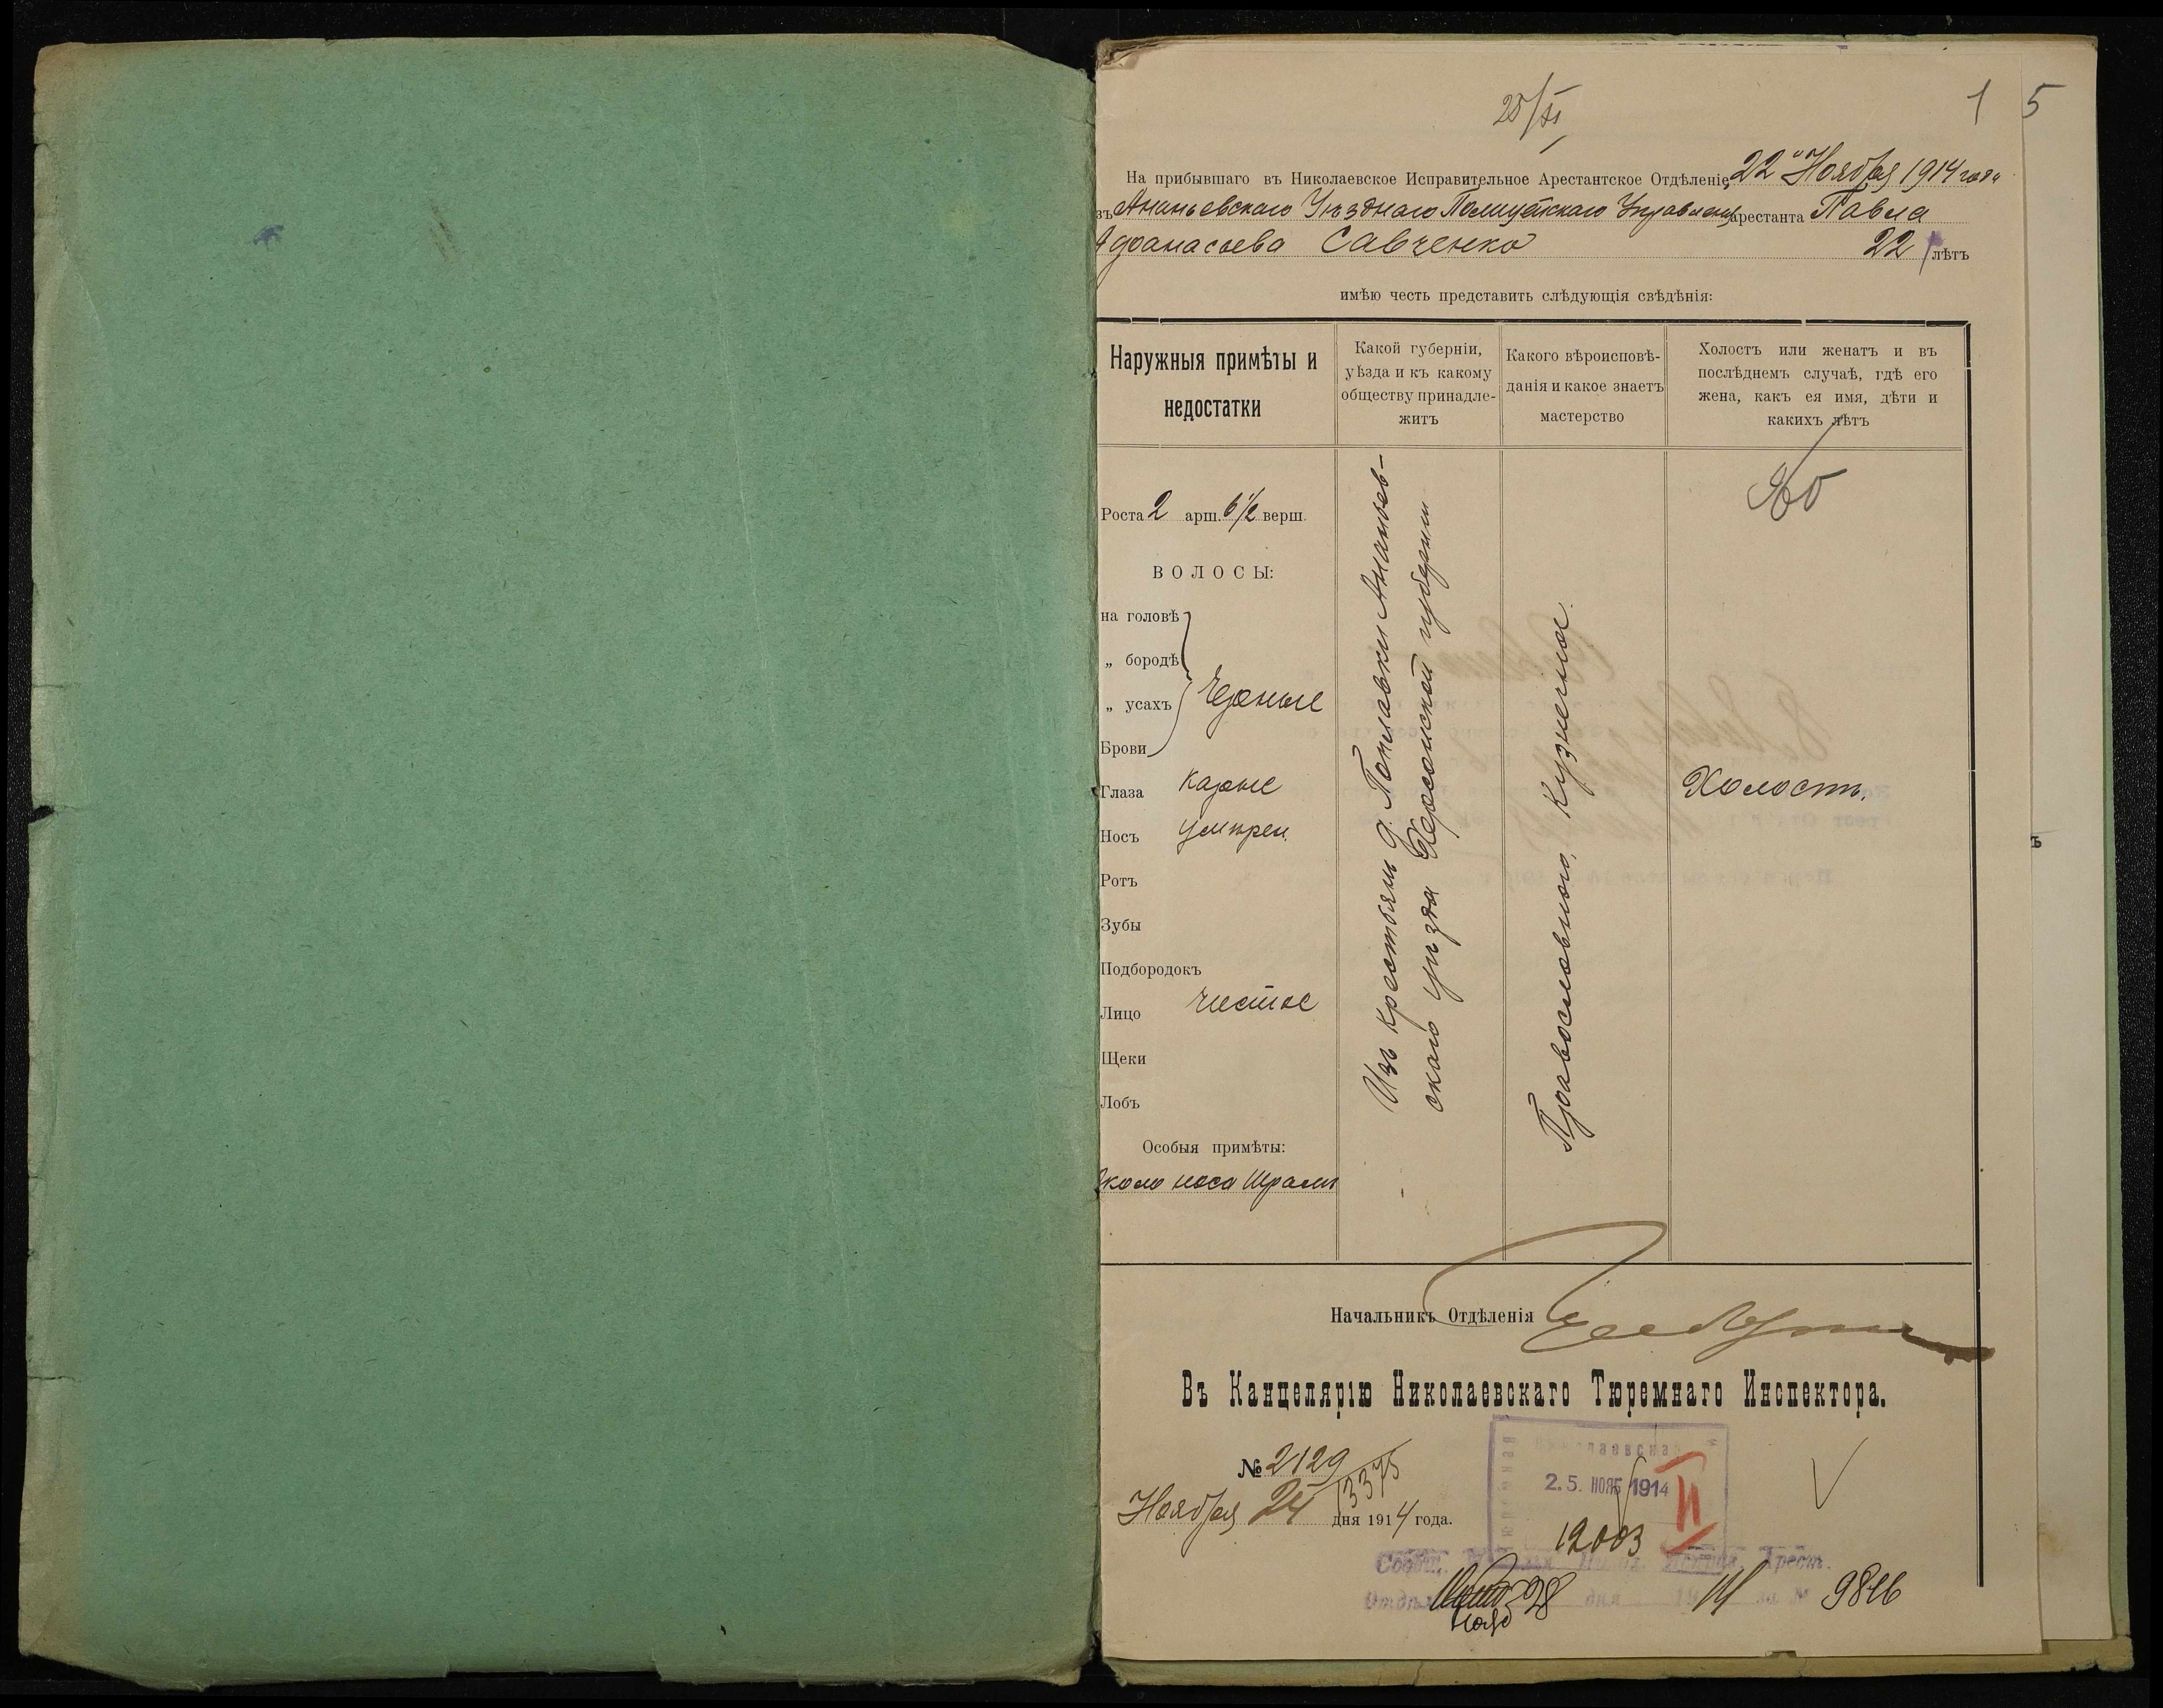 25/XI
1 5
На прибывшаго въ Николаевское Исправительное Арестантское Отдѣленіе 22 Ноября 1914 года
въ Ананьевскаго Уѣзднаго Полицейскаго Управленія арестанта Павла
Афанасьева Савченко 22 лѣтъ
имѣю честь представить слѣдующія свѣдѣнія:
Наружныя примѣты и
недостатки
Какой губерніи,
уѣзда и къ какому
обществу принадле-
житъ
Какого вѣроисповѣ-
данія и какое знаетъ
мастерство
Холостъ или женатъ и въ
послѣднемъ случаѣ, гдѣ его
жена, какъ ея имя, дѣти и
какихъ лѣтъ
Роста 2 арш. 6 1/2 верш.
ВОЛОСЫ:
на головѣ
„ бородѣ
„ усахъ Черные
Брови
Глаза Карые
Носъ умѣрен.
Ротъ
Зубы
Подбородокъ
Лицо чистое
Щеки
Лобъ
Особыя примѣты:
Около носа шрамъ
Изъ крестьянъ д. Поплавки Ананьев-
скаго уѣзда Херсонской губерніи
Православнаго, Кузнеца.
Холостъ.
Начальникъ Отдѣленія
Въ Канцелярію Николаевскаго Тюремнаго Инспектора.
№ 2129
13375
Ноября 24 дня 1914 года.
25 НОЯБ 1914
II
12003
Нояб 28 14 9846